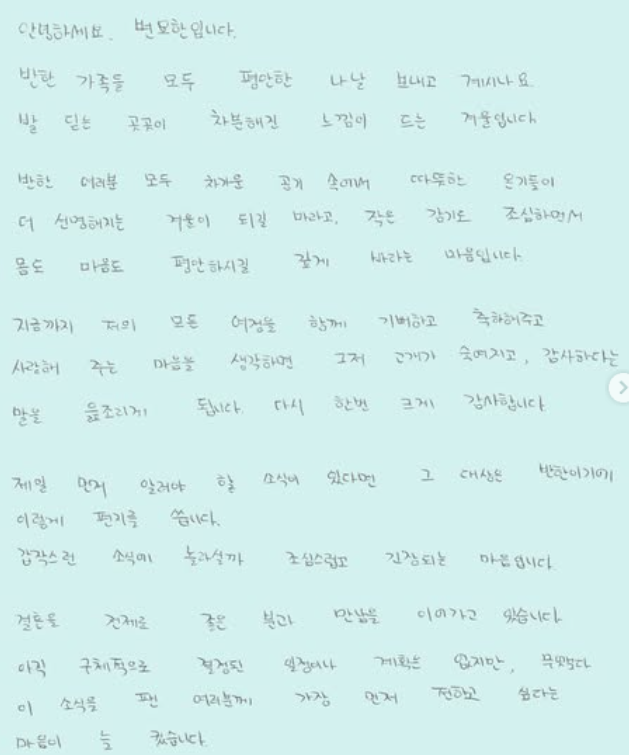 안녕하세요. 변요한입니다.
반한 가족들 모두 평안한 나날 보내고 계시나요
발 딛는 곳곳이 차분해진 느낌이 드는 겨울입니다
반한 여러분 모두 차가운 공기 속에서 따뜻한 온기들이
더 선명해지는 겨울이 되길 바라고, 작은 감기도 조심하면서
몸도 마음도 평안하시길 깊게 바라는 마음입니다.
지금까지 저의 모든 여정을 함께 기뻐하고 축하해주고
사랑해 주는 마음을 생각하면 그저 고개가 숙여지고, 감사하다는
말을 읊조리게 됩니다. 다시 한번 크게 감사합니다
제일 먼저 알려야 할 소식이 있다면 그 대상은 반한이기에
이렇게 편지를 씁니다.
갑작스런 소식에 놀라실까 조심스럽고 긴장되는 마음입니다
결혼을 전제로 좋은 분과 만남을 이어가고 있습니다
아직 구체적으로 결정된 일정이나 계획은 없지만, 무엇보다
이 소식을 팬 여러분께 가장 먼저 전하고 싶다는
마음이 늘 컸습니다.